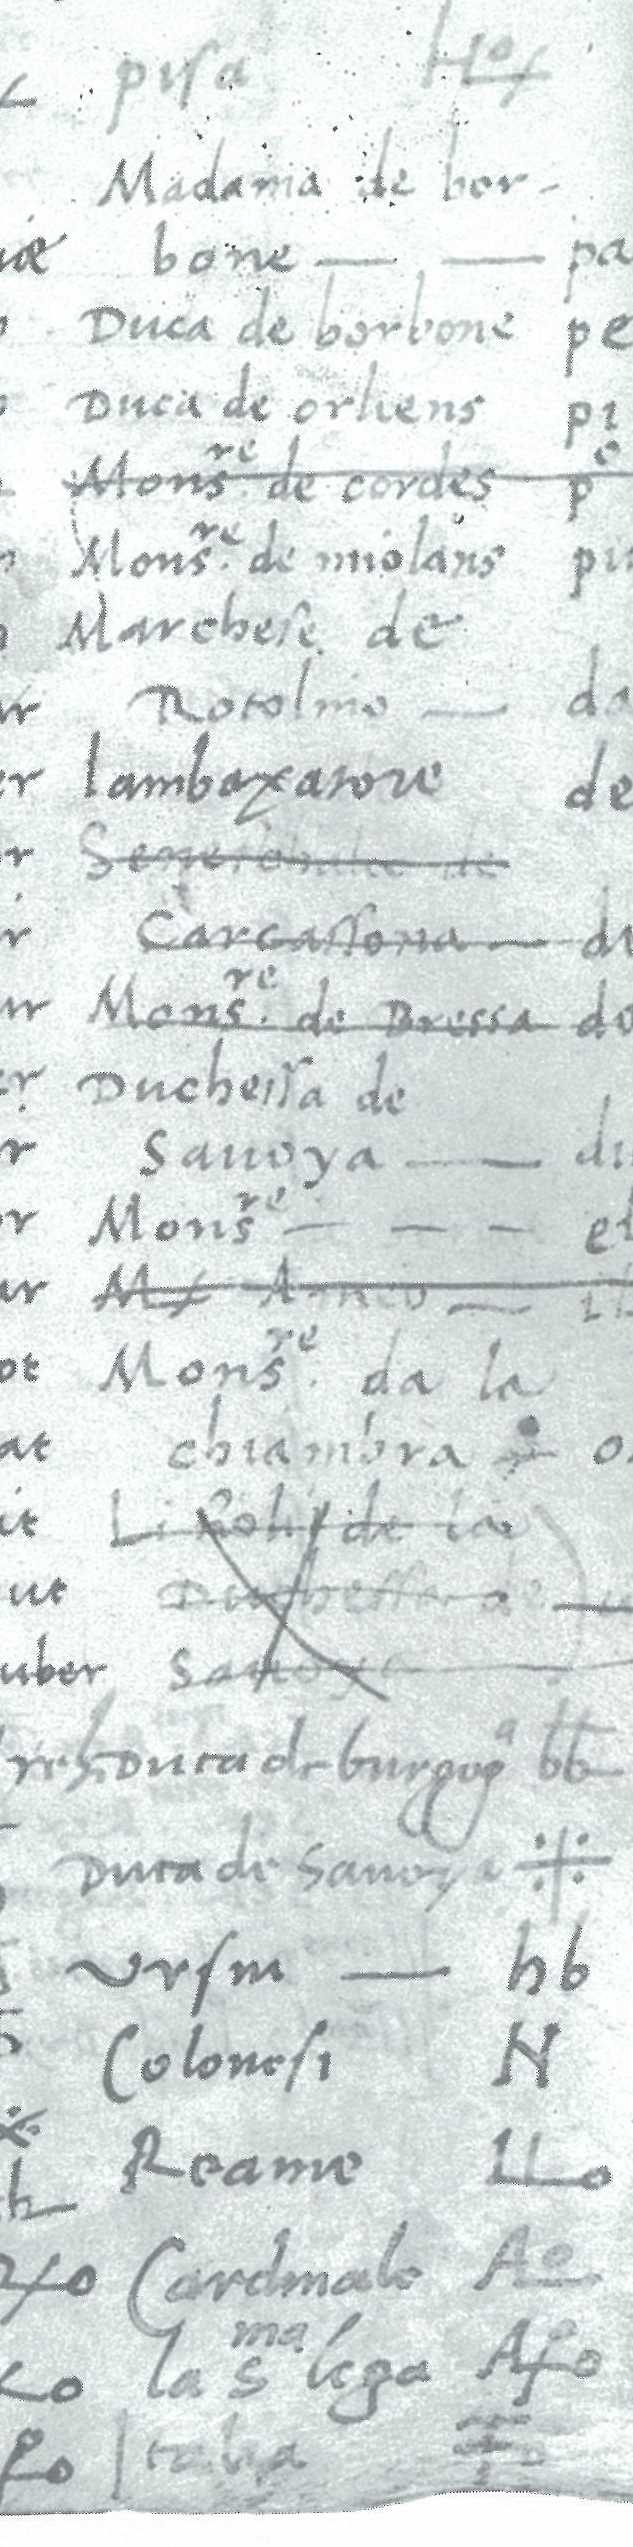 pisa Hoƒ
Madama de bor-
uæ bone — — pa
Duca de borbone pe
Duca de orliens pi
Monsre. de cordes pe
Monsre. de miolans pu
Marchese de
ar Rotolino — da
er lambaxatore de
or Seneschalcho de
ir Carcassona — di
ur Monsre. de Bressa do
er Duchessa de
ir Sauoya — du
or Monsre — — — el
ur
ot Monsre. da la
at chiambra
it Li de la
ut Duchessa de
uber Sauoya
Duca de burgogᵃ bb
Duca de Sauoya
Vrsini — hb
Colonesi N
Reame LLo
Cardinale Ao
la Sma lega Afo
Italia